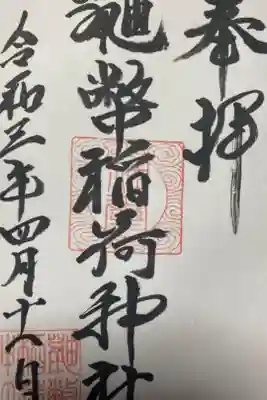 奉拝
幣稲荷神社
令和三年四月十八日